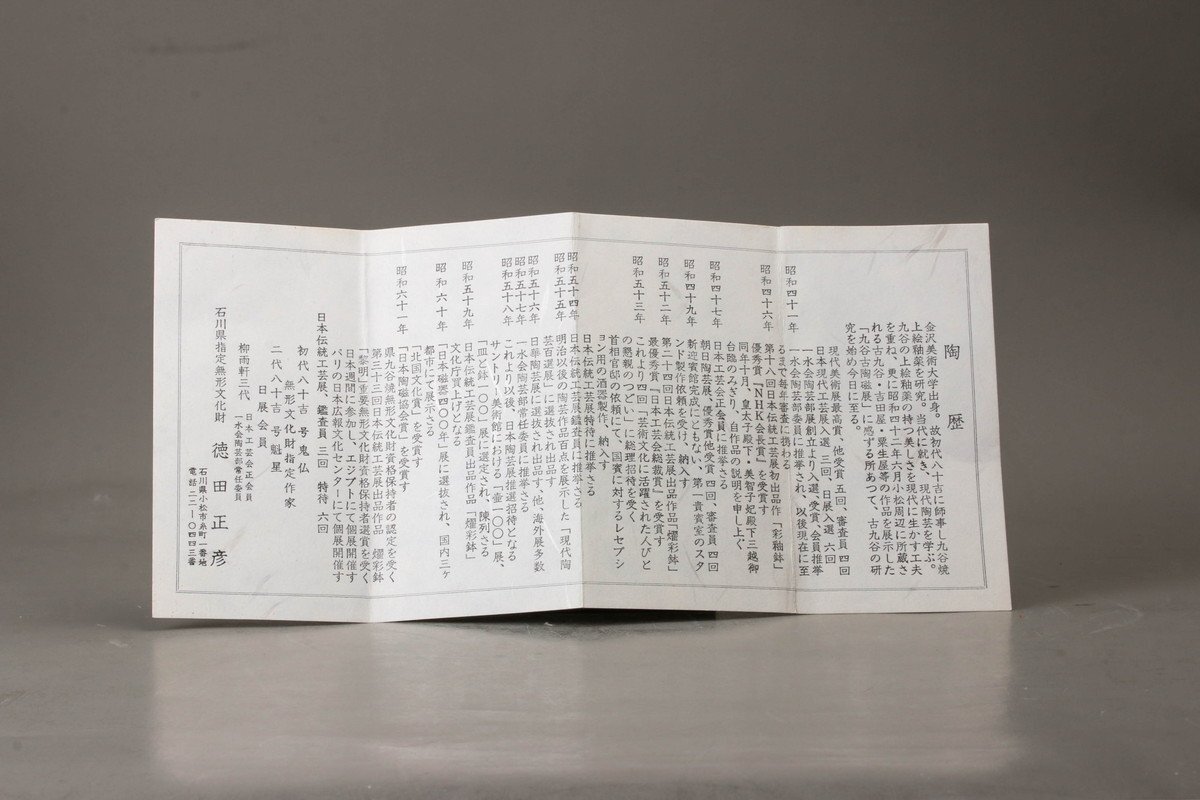 陶歴
金沢美術大学出身。故初代八十吉に師事し九谷焼
上絵釉薬を研究。当代に就き、現代陶芸を学ぶ。
九谷の上絵釉薬の持つ美しさを現代に生かす工夫
を重ね、更に昭和四十二年六月小松周辺に所蔵さ
れる古九谷・吉田屋・粟生屋等の作品を展示した
「九谷古陶磁展」に感ずる所あつて、古九谷の研
究を始め今日に至る。
現代美術展最高賞、他受賞 五回、審査員 四回
日本現代工芸展入選 三回、日展入選 六回
昭和四十一年 一水会陶芸部展創立より入選、受賞、会員推挙
一水会陶芸部委員に推挙され、以後現在に至
るまで毎年審査に携わる
昭和四十六年 第十八回日本伝統工芸展初出品作「彩釉鉢」
優秀賞「NHK会長賞」を受賞す
同年十月、皇太子殿下・美智子妃殿下三越御
台臨のみぎり、自作品の説明を申し上ぐ
昭和四十七年 日本工芸会正会員に推挙さる
朝日陶芸展、優秀賞他受賞 四回、審査員 四回
昭和四十九年 新迎賓館完成にともない、第一貴賓室のスタ
ンド製作依頼を受け、納入す
昭和五十二年 第二十四回日本伝統工芸展出品作品「燿彩鉢」
最優秀賞「日本工芸会総裁賞」を受賞す
昭和五十三年 これより四回「芸術文化に活躍された人びと
の懇親のつどい」に総理招待を受く
首相官邸の依頼にて、国賓に対するレセプシ
ョン用の酒器製作、納入す
日本伝統工芸展特待に推挙さる
昭和五十四年 日本伝統工芸展鑑査員に推挙さる
昭和五十五年 明治以後の陶芸作品百点を展示した「現代陶
芸百選展」に選抜され出品す
昭和五十六年 日華陶芸展に選抜され出品す、他、海外展多数
昭和五十七年 一水会陶芸部常任委員に推挙さる
昭和五十八年 これより以後、日本陶芸展推選招待となる
サントリー美術館における「壷一〇〇」展、
「皿と鉢一〇〇」展に選定され、陳列さる
昭和五十九年 日本伝統工芸展鑑査員出品作品「燿彩鉢」
文化庁買上げとなる
昭和六十年 「日本磁器四〇〇年」展に選抜され、国内三ヶ
都市にて展示さる
「北国文化賞」を受賞す
昭和六十一年 「日本陶磁協会賞」を受賞す
県九谷焼無形文化財資格保持者の認定を受く
第三十三回日本伝統工芸展出品作品「燿彩鉢
「黎明」重要無形文化財資格保持者選賞を受く
日本週間に参加しエジプトにて個展開催す
パリの日本広報文化センターにて個展開催す
日本伝統工芸展、鑑査員 三回 特待 六回
初代八十吉 号鬼仏
無形文化財指定作家
二代八十吉 号魁星
日展会員
柳雨軒三代 日本工芸会正会員
一水会陶芸部常任委員
石川県指定無形文化財 徳田正彦
石川県小松市糸町一番地
電話二二-〇四四三番